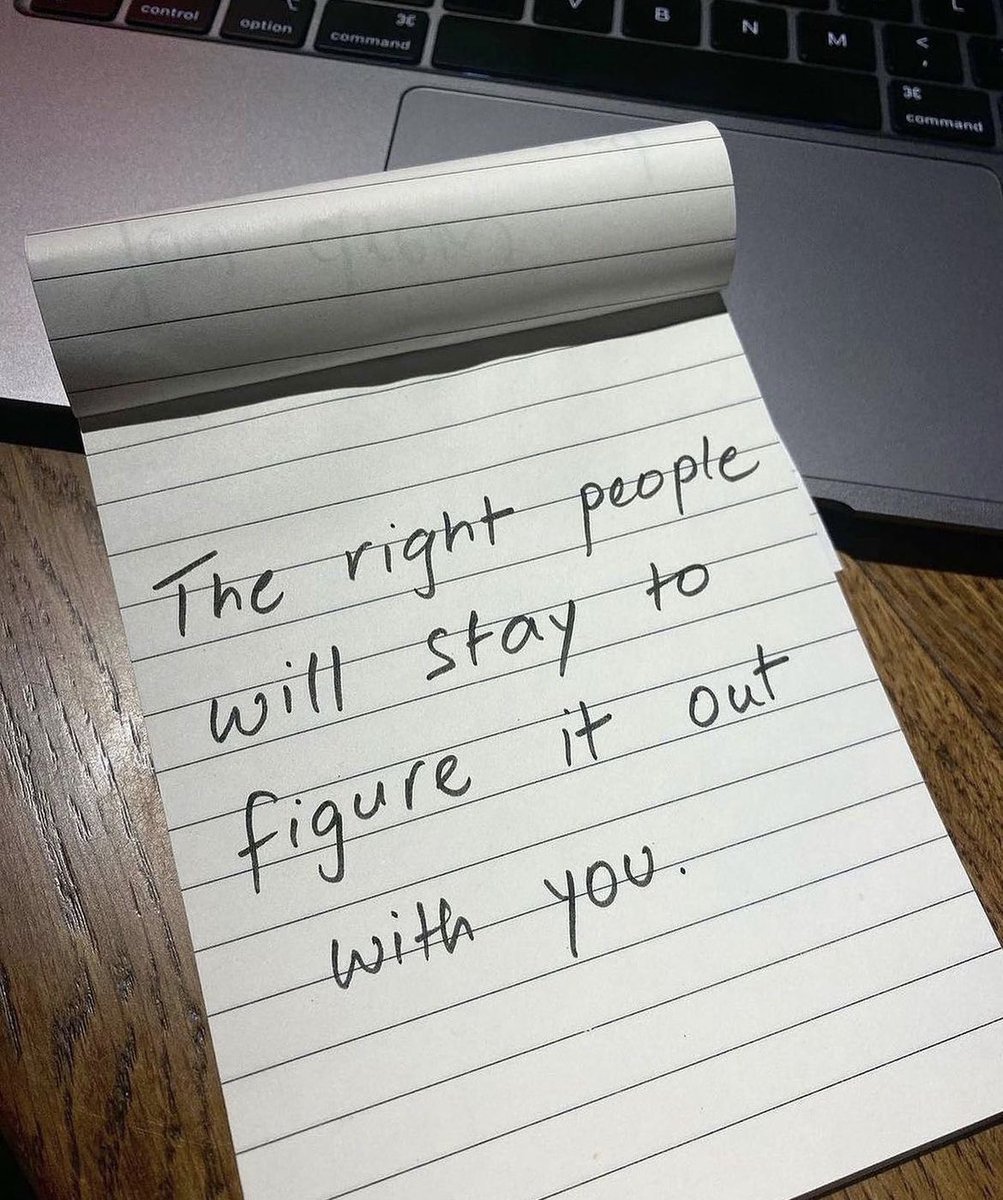 control
option
⌘
command
V
B
N
M
<
,
⌘
command
The right people
will stay to
figure it out
with you.